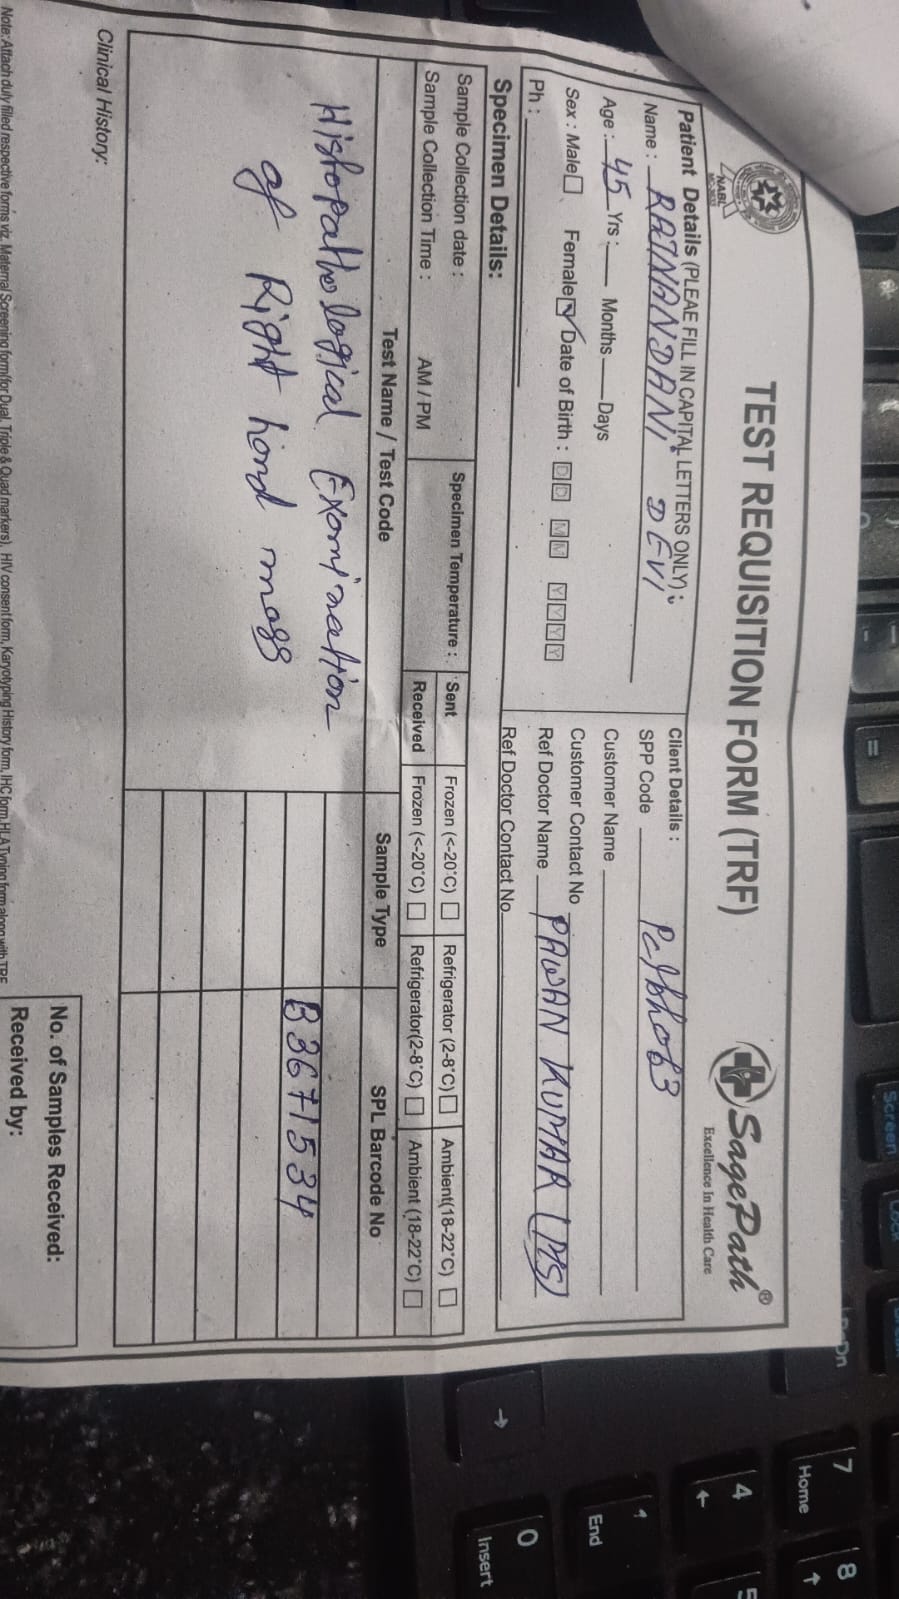 TEST REQUISITION FORM (TRF)
SagePath®
Excellence In Health Care
NABL
Patient Details (PLEAE FILL IN CAPITAL LETTERS ONLY) :
Name : RATNANDANI DEVI
Age : 45 Yrs : Months Days
Sex : Male Female Date of Birth : D D M M Y Y Y Y
Ph :
Client Details :
SPP Code
Customer Name
Customer Contact No
Ref Doctor Name PAWAN KUMAR (MS)
Ref Doctor Contact No
Specimen Details:
Sample Collection date :
Sample Collection Time : AM / PM
Specimen Temperature :
Sent Frozen (<-20°C) Refrigerator (2-8°C) Ambient(18-22°C)
Received Frozen (<-20°C) Refrigerator(2-8°C) Ambient (18-22°C)
Test Name / Test Code Sample Type SPL Barcode No
Histopathological Examination
of Right hand mass
B3671534
Clinical History:
No. of Samples Received:
Received by:
Note: Attach duly filled respective forms viz. Maternal Screening form(for Dual, Triple & Quad markers), HIV consent form, Karyotyping History form, IHC form, HLA Typing form along with TRF
= Screen Lock
7 Home 8
4 5
1 End
0 Insert